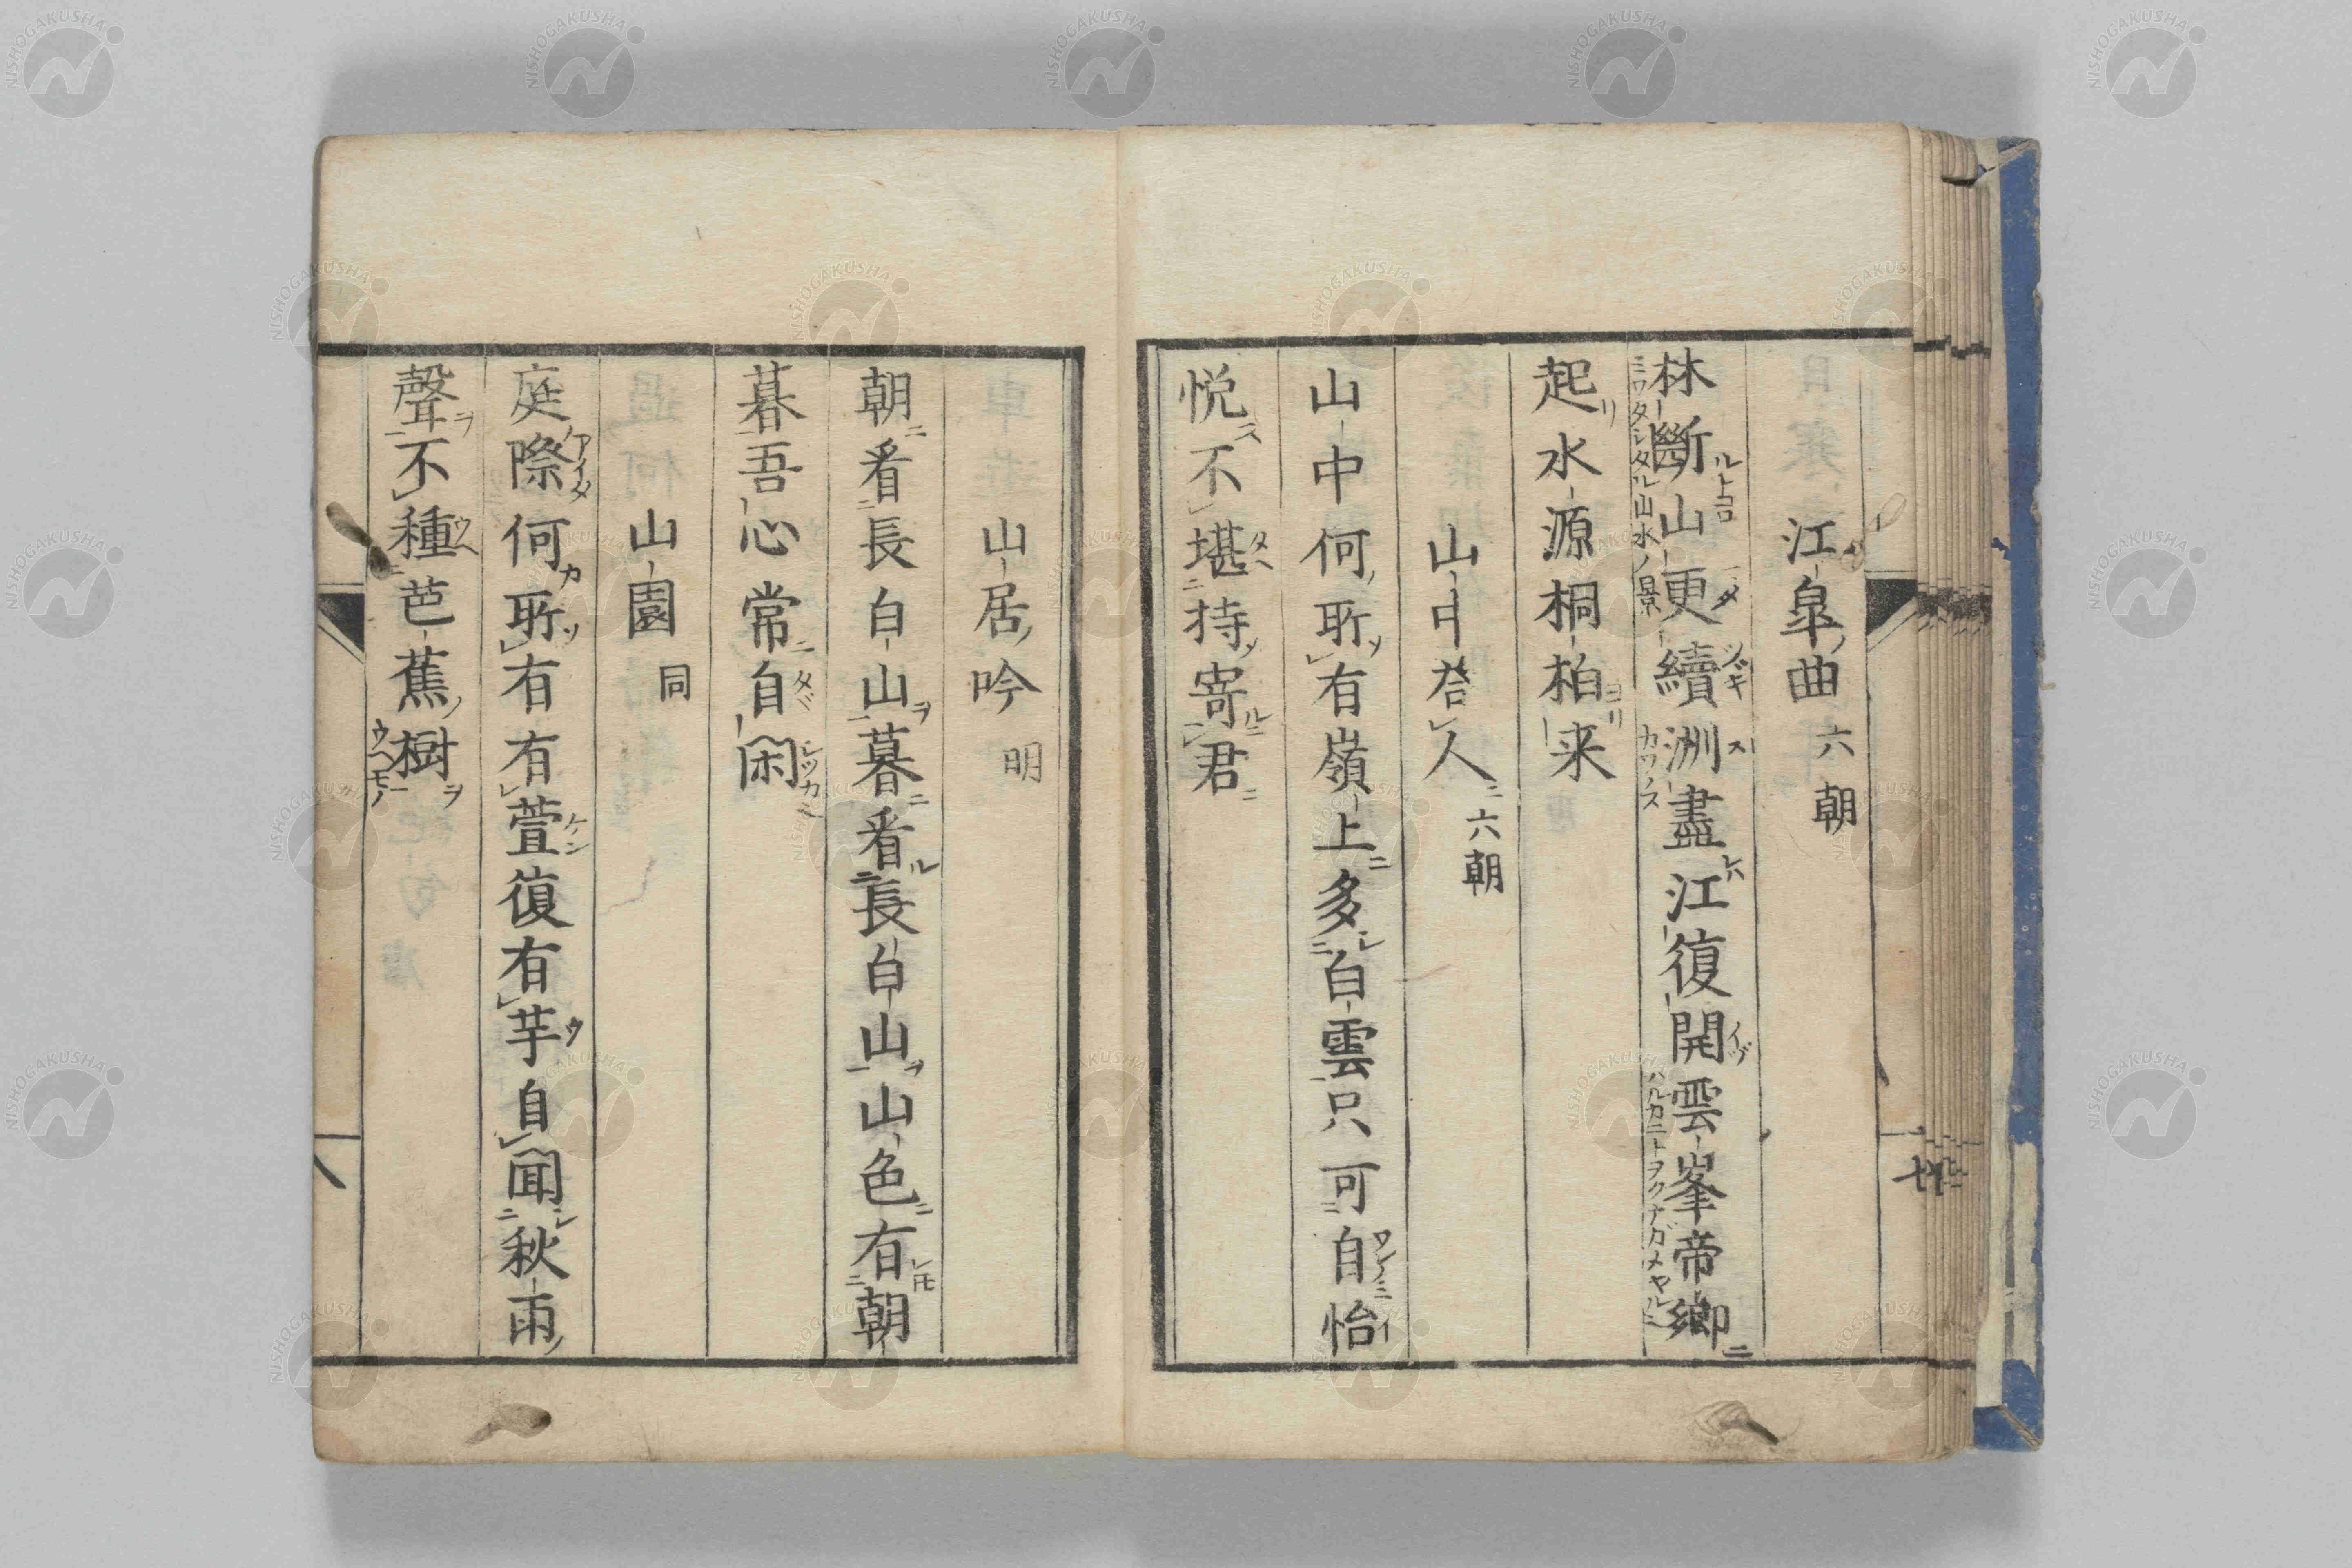 江皐曲 六朝
林斷山更續洲盡江復開雲峯帝鄉
起水源桐柏来
山中荅人 六朝
山中何所有嶺上多白雲只可自怡
悦不堪持寄君
山居吟 明
朝看長白山暮看長白山山色有朝
暮吾心常自閑
山園 同
庭際何所有有萱復有芋自聞秋雨
聲不種芭蕉樹